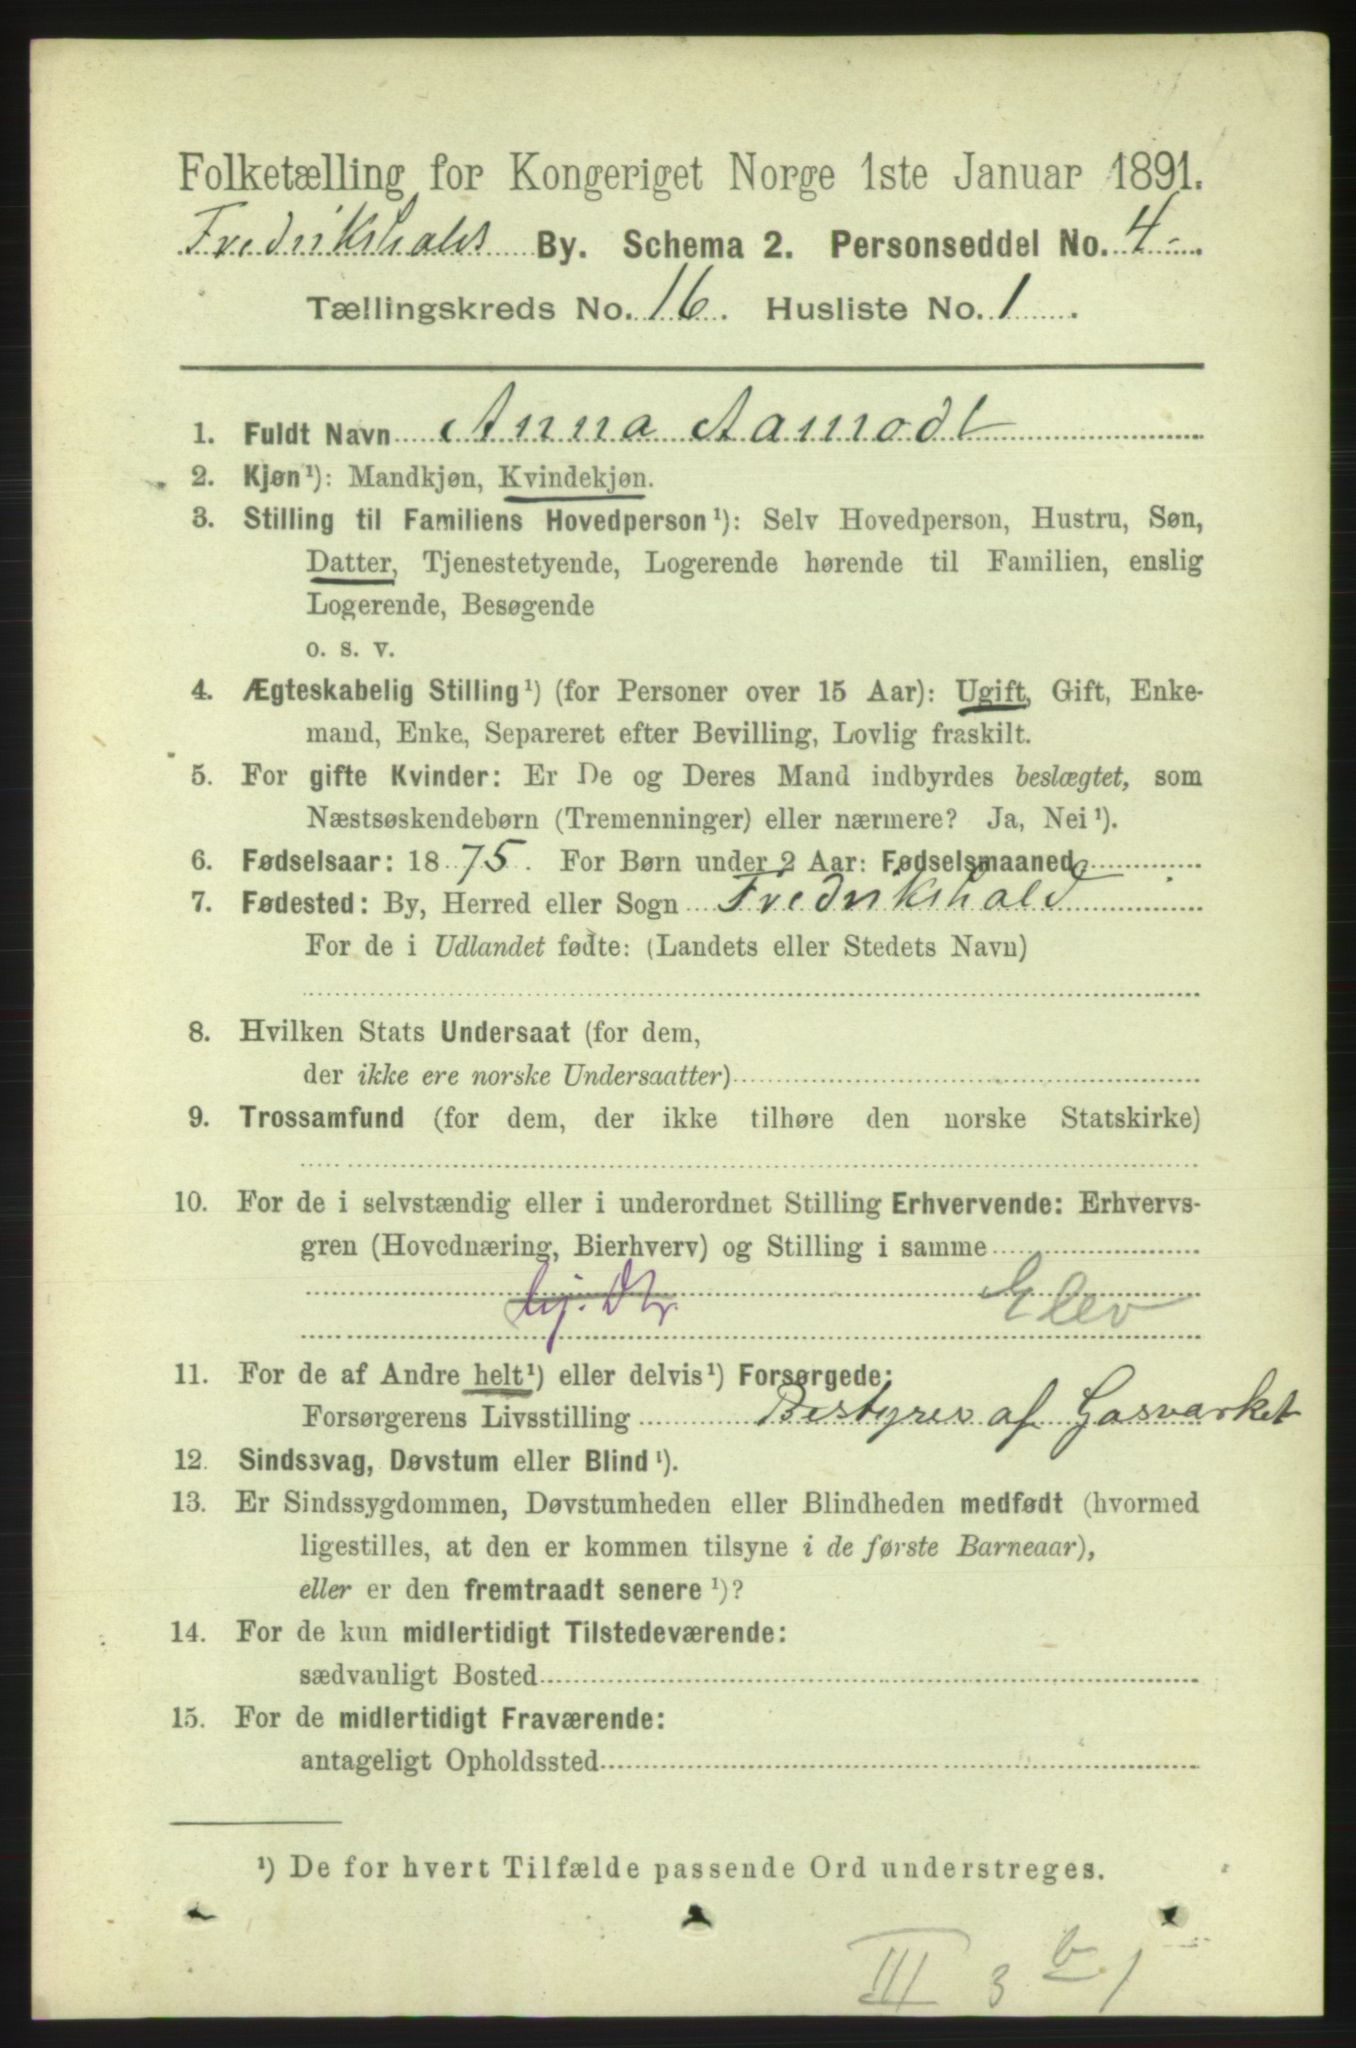 Folketælling for Kongeriget Norge 1ste Januar 1891.
Fredrikshalds By. Schema 2. Personseddel No. 4
Tællingskreds No. 16. Husliste No. 1.
1. Fuldt Navn Anna Aamodt
2. Kjøn¹): Mandkjøn, Kvindekjøn.
3. Stilling til Familiens Hovedperson¹): Selv Hovedperson, Hustru, Søn,
Datter, Tjenestetyende, Logerende hørende til Familien, enslig
Logerende, Besøgende
o. s. v.
4. Ægteskabelig Stilling¹) (for Personer over 15 Aar): Ugift, Gift, Enke-
mand, Enke, Separeret efter Bevilling, Lovlig fraskilt.
5. For gifte Kvinder: Er De og Deres Mand indbyrdes beslægtet, som
Næstsøskendebørn (Tremenninger) eller nærmere? Ja, Nei¹).
6. Fødselsaar: 1875. For Børn under 2 Aar: Fødselsmaaned
7. Fødested: By, Herred eller Sogn Fredrikshald
For de i Udlandet fødte: (Landets eller Stedets Navn)
8. Hvilken Stats Undersaat (for dem,
der ikke ere norske Undersaatter)
9. Trossamfund (for dem, der ikke tilhøre den norske Statskirke)
10. For de i selvstændig eller i underordnet Stilling Erhvervende: Erhvervs-
gren (Hovednæring, Bierhverv) og Stilling i samme
hj. Dtr. Elev
11. For de af Andre helt¹) eller delvis¹) Forsørgede:
Forsørgerens Livsstilling Bestyrer af Gasvarket
12. Sindssvag, Døvstum eller Blind¹).
13. Er Sindssygdommen, Døvstumheden eller Blindheden medfødt (hvormed
ligestilles, at den er kommen tilsyne i de første Barneaar),
eller er den fremtraadt senere¹)?
14. For de kun midlertidigt Tilstedeværende:
sædvanligt Bosted
15. For de midlertidigt Fraværende:
antageligt Opholdssted
¹) De for hvert Tilfælde passende Ord understreges.
III 3 b. 1